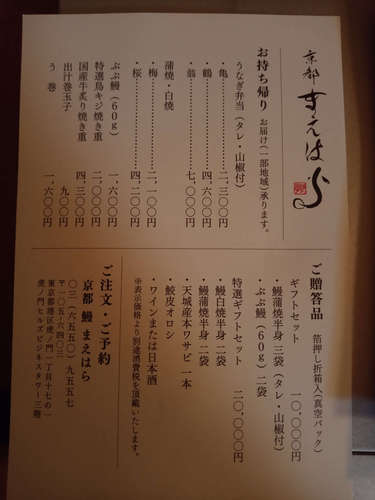 京都 まえはら
お持ち帰り お届け(一部地域)承ります。
うなぎ弁当(タレ・山椒付)
・亀……………二、三〇〇円
・鶴……………四、六〇〇円
・翁……………七、〇〇〇円
蒲焼・白焼
・梅……………二、一〇〇円
・桜……………四、二〇〇円
ぶぶ鰻(60g) 一、六〇〇円
特選鳥キジ焼き重 二、〇〇〇円
国産牛炙り焼き重 四、三〇〇円
出汁巻玉子 九〇〇円
う巻 一、六〇〇円
ご贈答品 箔押し折箱入(真空パック)
ギフトセット 一〇、〇〇〇円
・鰻蒲焼半身 三袋(タレ・山椒付)
・ぶぶ鰻(60g)二袋
特選ギフトセット 二〇、〇〇〇円
・鰻蒲焼半身 二袋
・鰻白焼半身 二袋
・天城産本ワサビ 一本
・鮫皮オロシ
・ワインまたは日本酒
※表示価格より別途消費税を頂戴いたします。
ご注文・ご予約
京都 鰻 まえはら
〇三-六五五〇-九五五七
〒一〇五-六四〇三
東京都港区虎ノ門一丁目十七の一
虎ノ門ヒルズビジネスタワー三階